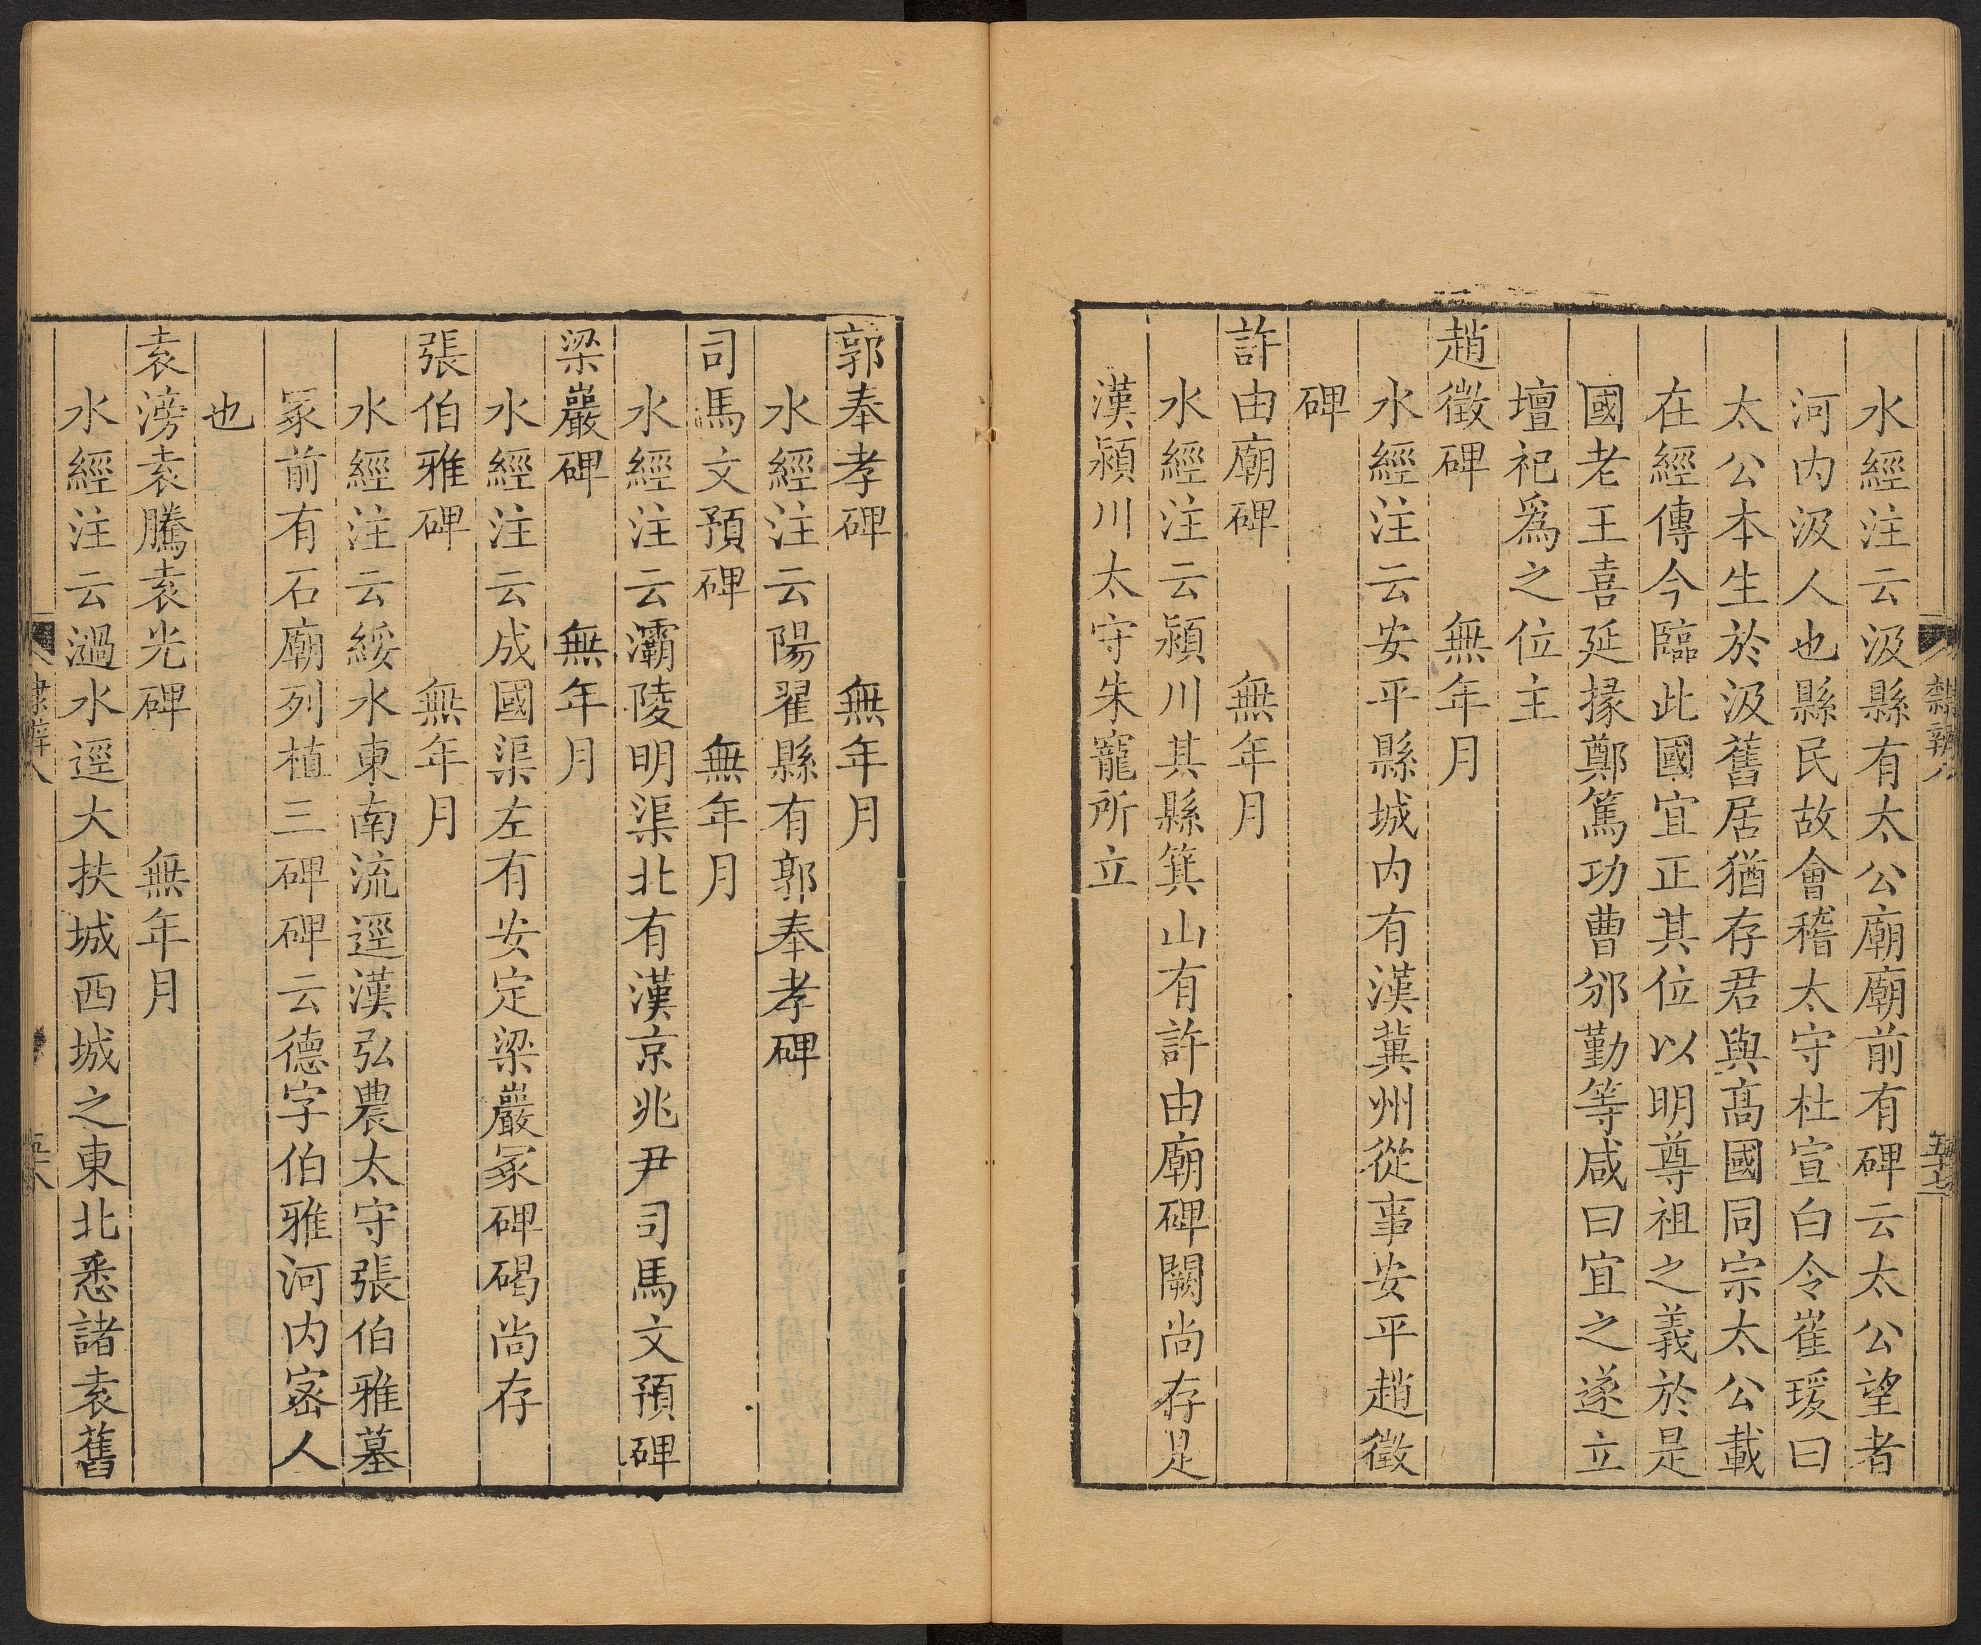 水經注云汲縣有太公廟廟前有碑云太公望者
河内汲人也縣民故會稽太守杜宣白令崔瑗曰
太公本生於汲舊居猶存君與髙國同宗太公載
在經傳今臨此國宜正其位以明尊祖之義於是
國老王喜延掾鄭篤功曹邠勤等咸曰宜之遂立
壇祀爲之位主
趙徵碑　無年月
水經注云安平縣城内有漢冀州從事安平趙徵
碑
許由廟碑　無年月
水經注云潁川其縣箕山有許由廟碑闕尚存是
漢潁川太守朱寵所立
郭奉孝碑　無年月
水經注云陽翟縣有郭奉孝碑
司馬文預碑　無年月
水經注云灞陵明渠北有漢京兆尹司馬文預碑
梁巖碑　無年月
水經注云成國渠左有安定梁巖冢碑碣尚存
張伯雅碑　無年月
水經注云綏水東南流逕漢弘農太守張伯雅墓
冢前有石廟列植三碑碑云德字伯雅河内宻人
也
袁滂袁騰袁光碑　無年月
水經注云渦水逕大扶城西城之東北悉諸袁舊